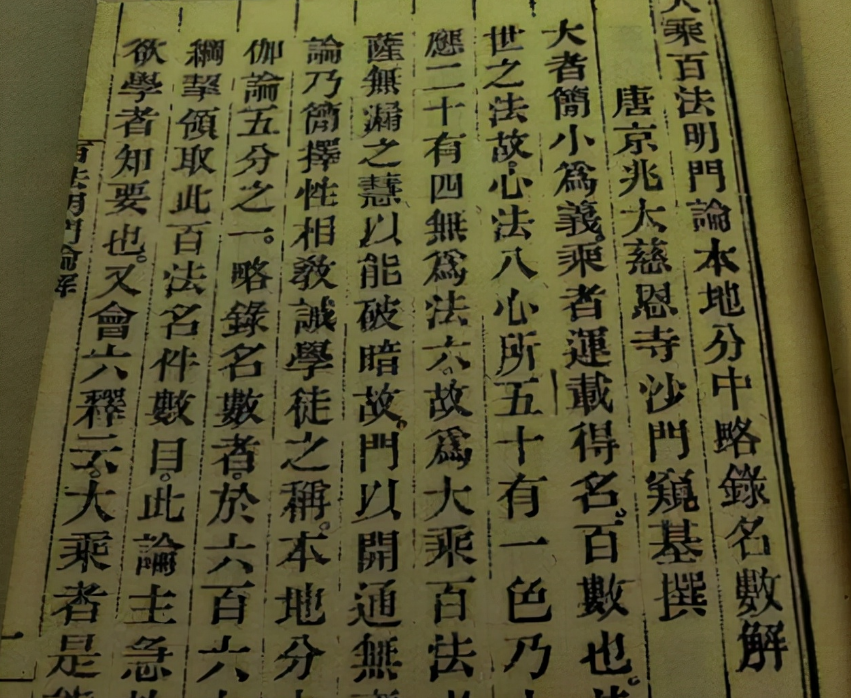 乘百法明門論本地分中略錄名數解
唐京兆大慈恩寺沙門窺基撰
大者簡小爲義。乘者運載得名。百數也。
世之法故。心法八心所五十有一色乃
應二十有四無爲法六。故爲大乘百法
薩無漏之慧以能破暗故。門以開通無
論乃簡擇性相敎誡學徒之稱。本地分
伽論五分之一。略錄名數者。於六百六
綱挈領取此百法名件數目。此論主急
欲學者知要也。又會六釋云。大乘者是
百法明門論解
一